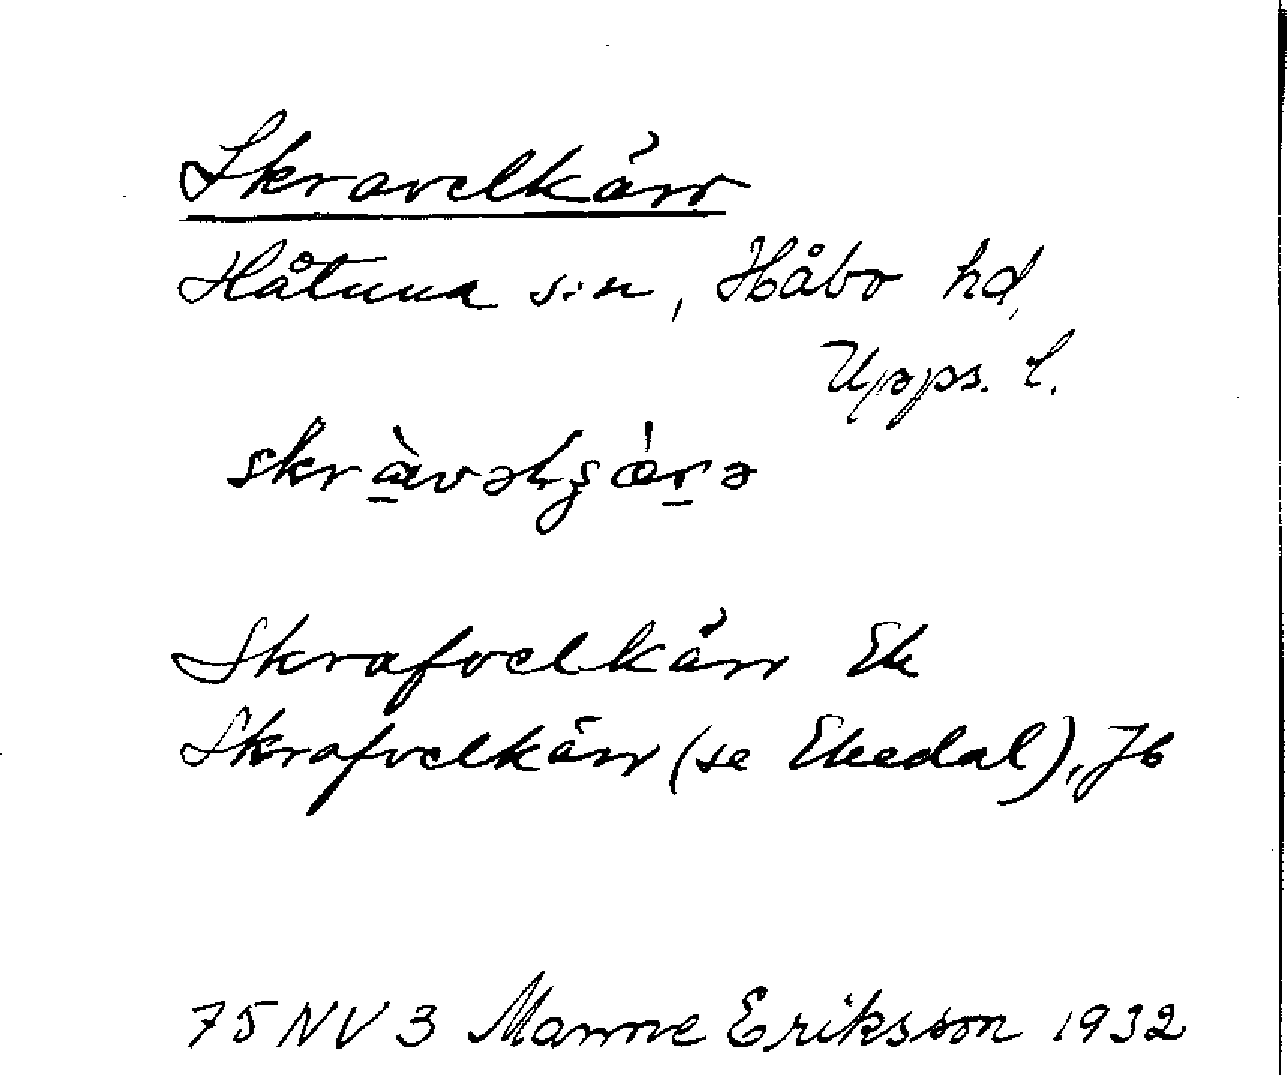 Skravelkärr
Håtuna s:n, Håbo hd,
Upps. l.
Skrafvelkärr Ek
Skrafvelkärr (se Ekedal), Jb
75 NV 3 Manne Eriksson 1932